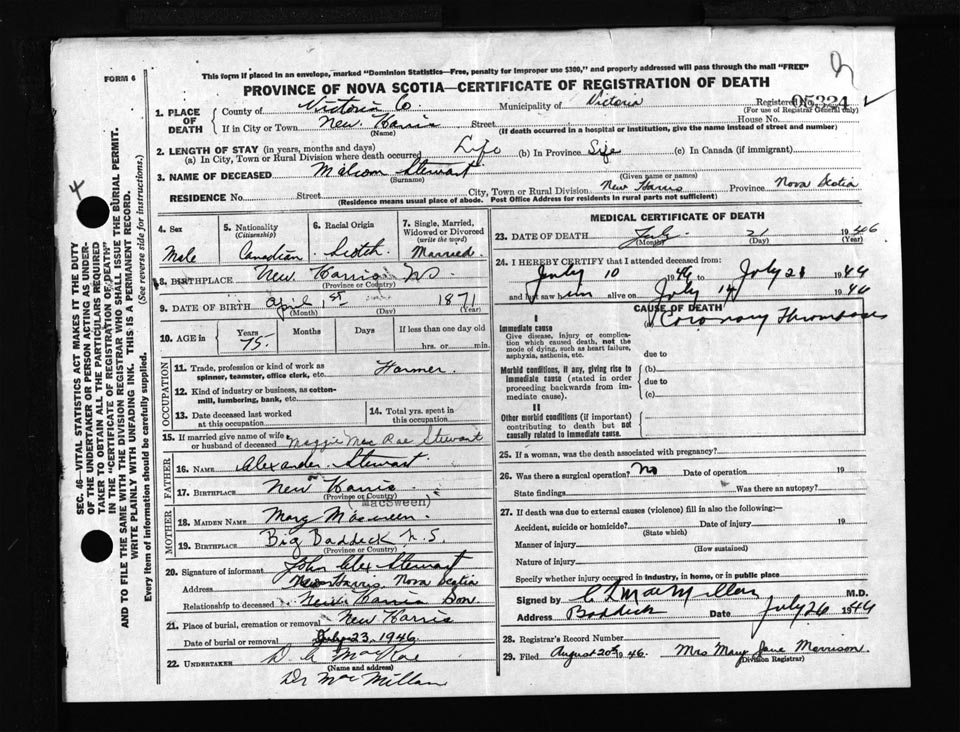 FORM 6
This form if placed in an envelope, marked "Dominion Statistics—Free, penalty for improper use $300," and properly addressed will pass through the mail "FREE"
PROVINCE OF NOVA SCOTIA—CERTIFICATE OF REGISTRATION OF DEATH
1. PLACE OF DEATH
County of Victoria Co Municipality of Victoria Registered No. 05324
(For use of Registrar General only)
If in City or Town New Harris Street House No.
(Name) (If death occurred in a hospital or institution, give the name instead of street and number)
2. LENGTH OF STAY (in years, months and days)
(a) In City, Town or Rural Division where death occurred Life (b) In Province Life (c) In Canada (if immigrant)
3. NAME OF DECEASED Stewart
(Surname) (Given name or names)
RESIDENCE No. Street City, Town or Rural Division New Harris Province Nova Scotia
(Residence means usual place of abode. Post Office Address for residents in rural parts not sufficient)
4. Sex
Male
5. Nationality
(Citizenship)
Canadian
6. Racial Origin
Scotch
7. Single, Married, Widowed or Divorced
(write the word)
Married
8. BIRTHPLACE New Harris N.S.
(Province or Country)
9. DATE OF BIRTH April 1st 1871
(Month) (Day) (Year)
10. AGE in
Years
75
Months
Days
If less than one day old
hrs. or min.
OCCUPATION
11. Trade, profession or kind of work as spinner, teamster, office clerk, etc. Farmer
12. Kind of industry or business, as cotton-mill, lumbering, bank, etc.
13. Date deceased last worked at this occupation
14. Total yrs. spent in this occupation
15. If married give name of wife or husband of deceased Maggie Mac Rae Stewart
FATHER
16. NAME Alexander Stewart
17. BIRTHPLACE New Harris
(Province or Country)
(MacSween)
MOTHER
18. MAIDEN NAME Mary
19. BIRTHPLACE Big Baddeck N.S.
(Province or Country)
20. Signature of informant John Alex Stewart
Address New Harris Nova Scotia
Relationship to deceased New Harris Son
21. Place of burial, cremation or removal New Harris
Date of burial or removal July 23. 1946
22. UNDERTAKER D. A MacRae
(Name and address)
Dr MacMillan
MEDICAL CERTIFICATE OF DEATH
23. DATE OF DEATH July 21 1946
(Month) (Day) (Year)
24. I HEREBY CERTIFY that I attended deceased from:
July 10 1946 to July 21 1946
and last saw him alive on July 14 1946
CAUSE OF DEATH
I
Immediate cause
Give disease, injury or complication which caused death, not the mode of dying, such as heart failure, asphyxia, asthenia, etc.
(a) Coronary Thrombosis
due to
Morbid conditions, if any, giving rise to immediate cause (stated in order proceeding backwards from immediate cause).
(b)
due to
(c)
II
Other morbid conditions (if important) contributing to death but not causally related to immediate cause.
25. If a woman, was the death associated with pregnancy?
26. Was there a surgical operation? No Date of operation 19
State findings Was there an autopsy?
27. If death was due to external causes (violence) fill in also the following:—
Accident, suicide or homicide? Date of injury 19
(State which)
Manner of injury
(How sustained)
Nature of injury
Specify whether injury occurred in industry, in home, or in public place
Signed by C L MacMillan M.D.
Address Baddeck Date July 26 1946
28. Registrar's Record Number
29. Filed August 20th 1946. Mrs Mary Jane Morrison.
(Division Registrar)
SEC. 46—VITAL STATISTICS ACT MAKES IT THE DUTY
OF THE UNDERTAKER OR PERSON ACTING AS UNDER-
TAKER TO OBTAIN ALL THE PARTICULARS REQUIRED
IN THE "CERTIFICATE OF REGISTRATION OF DEATH"
AND TO FILE THE SAME WITH THE DIVISION REGISTRAR WHO SHALL ISSUE THE BURIAL PERMIT.
WRITE PLAINLY WITH UNFADING INK. THIS IS A PERMANENT RECORD.
Every item of information should be carefully supplied. (See reverse side for instructions.)